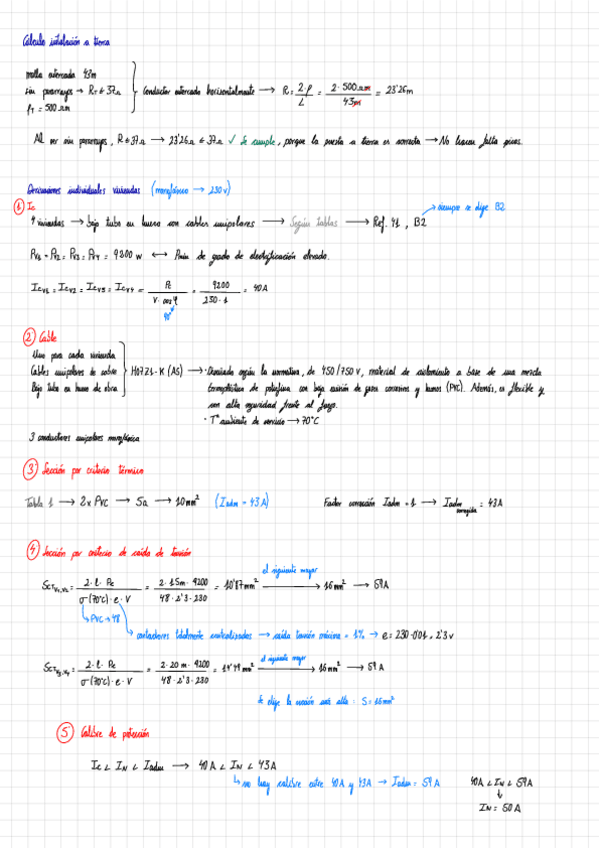 Cálculo instalación a tierra
malla enterrada 43m
sin pararrayos → RT ≤ 37Ω
ρT = 500 Ωm
Conductor enterrado horizontalmente → R = 2·ρ / L = 2·500 Ωm / 43m = 23'26 m
Al ser sin pararrayos, R ≤ 37Ω → 23'26Ω ≤ 37Ω ✓ Se cumple, porque la puesta a tierra es correcta → No hacen falta picas.
Derivaciones individuales viviendas (monofásico → 230V)
① Ic
→ siempre se elige B2
4 viviendas → bajo tubo en hueco con cables unipolares → Según tablas → Ref. 41, B2
PV1 = PV2 = PV3 = PV4 = 9200 W ↔ Pmin de grado de electrificación elevado.
ICV1 = ICV2 = ICV3 = ICV4 = Pc / V·cosφ = 9200 / 230·1 = 40A
② Cable
Uno para cada vivienda
Cables unipolares de cobre
Bajo tubo en hueco de obra
H07Z1-K (AS) → · Denominado según la normativa, de 450/750 V, material de aislamiento a base de una mezcla
termoplástica de poliolefina con baja emisión de gases corrosivos y humos (PVC). Además, es flexible y
con alta seguridad frente al fuego.
· Tª ambiente de servicio → 70°C
3 conductores unipolares monofásica
③ Sección por criterio térmico
Tabla 1 → 2x PVC → 5a → 10mm² (Iadm = 43A)
Factor corrección Iadm = 1 → Iadm corregida = 43A
④ Sección por criterio de caída de tensión
SCTV1,V2 = 2·l·Pc / σ(70°C)·e·V = 2·15m·9200 / 48·2'3·230 = 10'87mm² → el siguiente mayor → 16mm² → 59A
→ PVC → 48
→ contadores totalmente centralizados → caída tensión máxima = 1% → e = 230·0'01 = 2'3V
SCTV3,V4 = 2·l·Pc / σ(70°C)·e·V = 2·20m·9200 / 48·2'3·230 = 14'49mm² → el siguiente mayor → 16mm² → 59A
Se elige la sección más alta: S = 16mm²
⑤ Calibre de protección
Ic < IN < Iadm → 40A < IN < 43A
→ no hay calibre entre 40A y 43A → Iadm = 59A
40A < IN < 59A
↓
IN = 50A